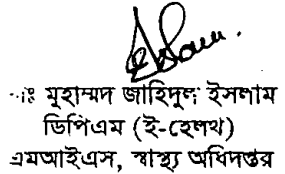 ডাঃ মুহাম্মদ জাহিদুল ইসলাম
ডিপিএম (ই-হেলথ)
এমআইএস, স্বাস্থ্য অধিদপ্তর